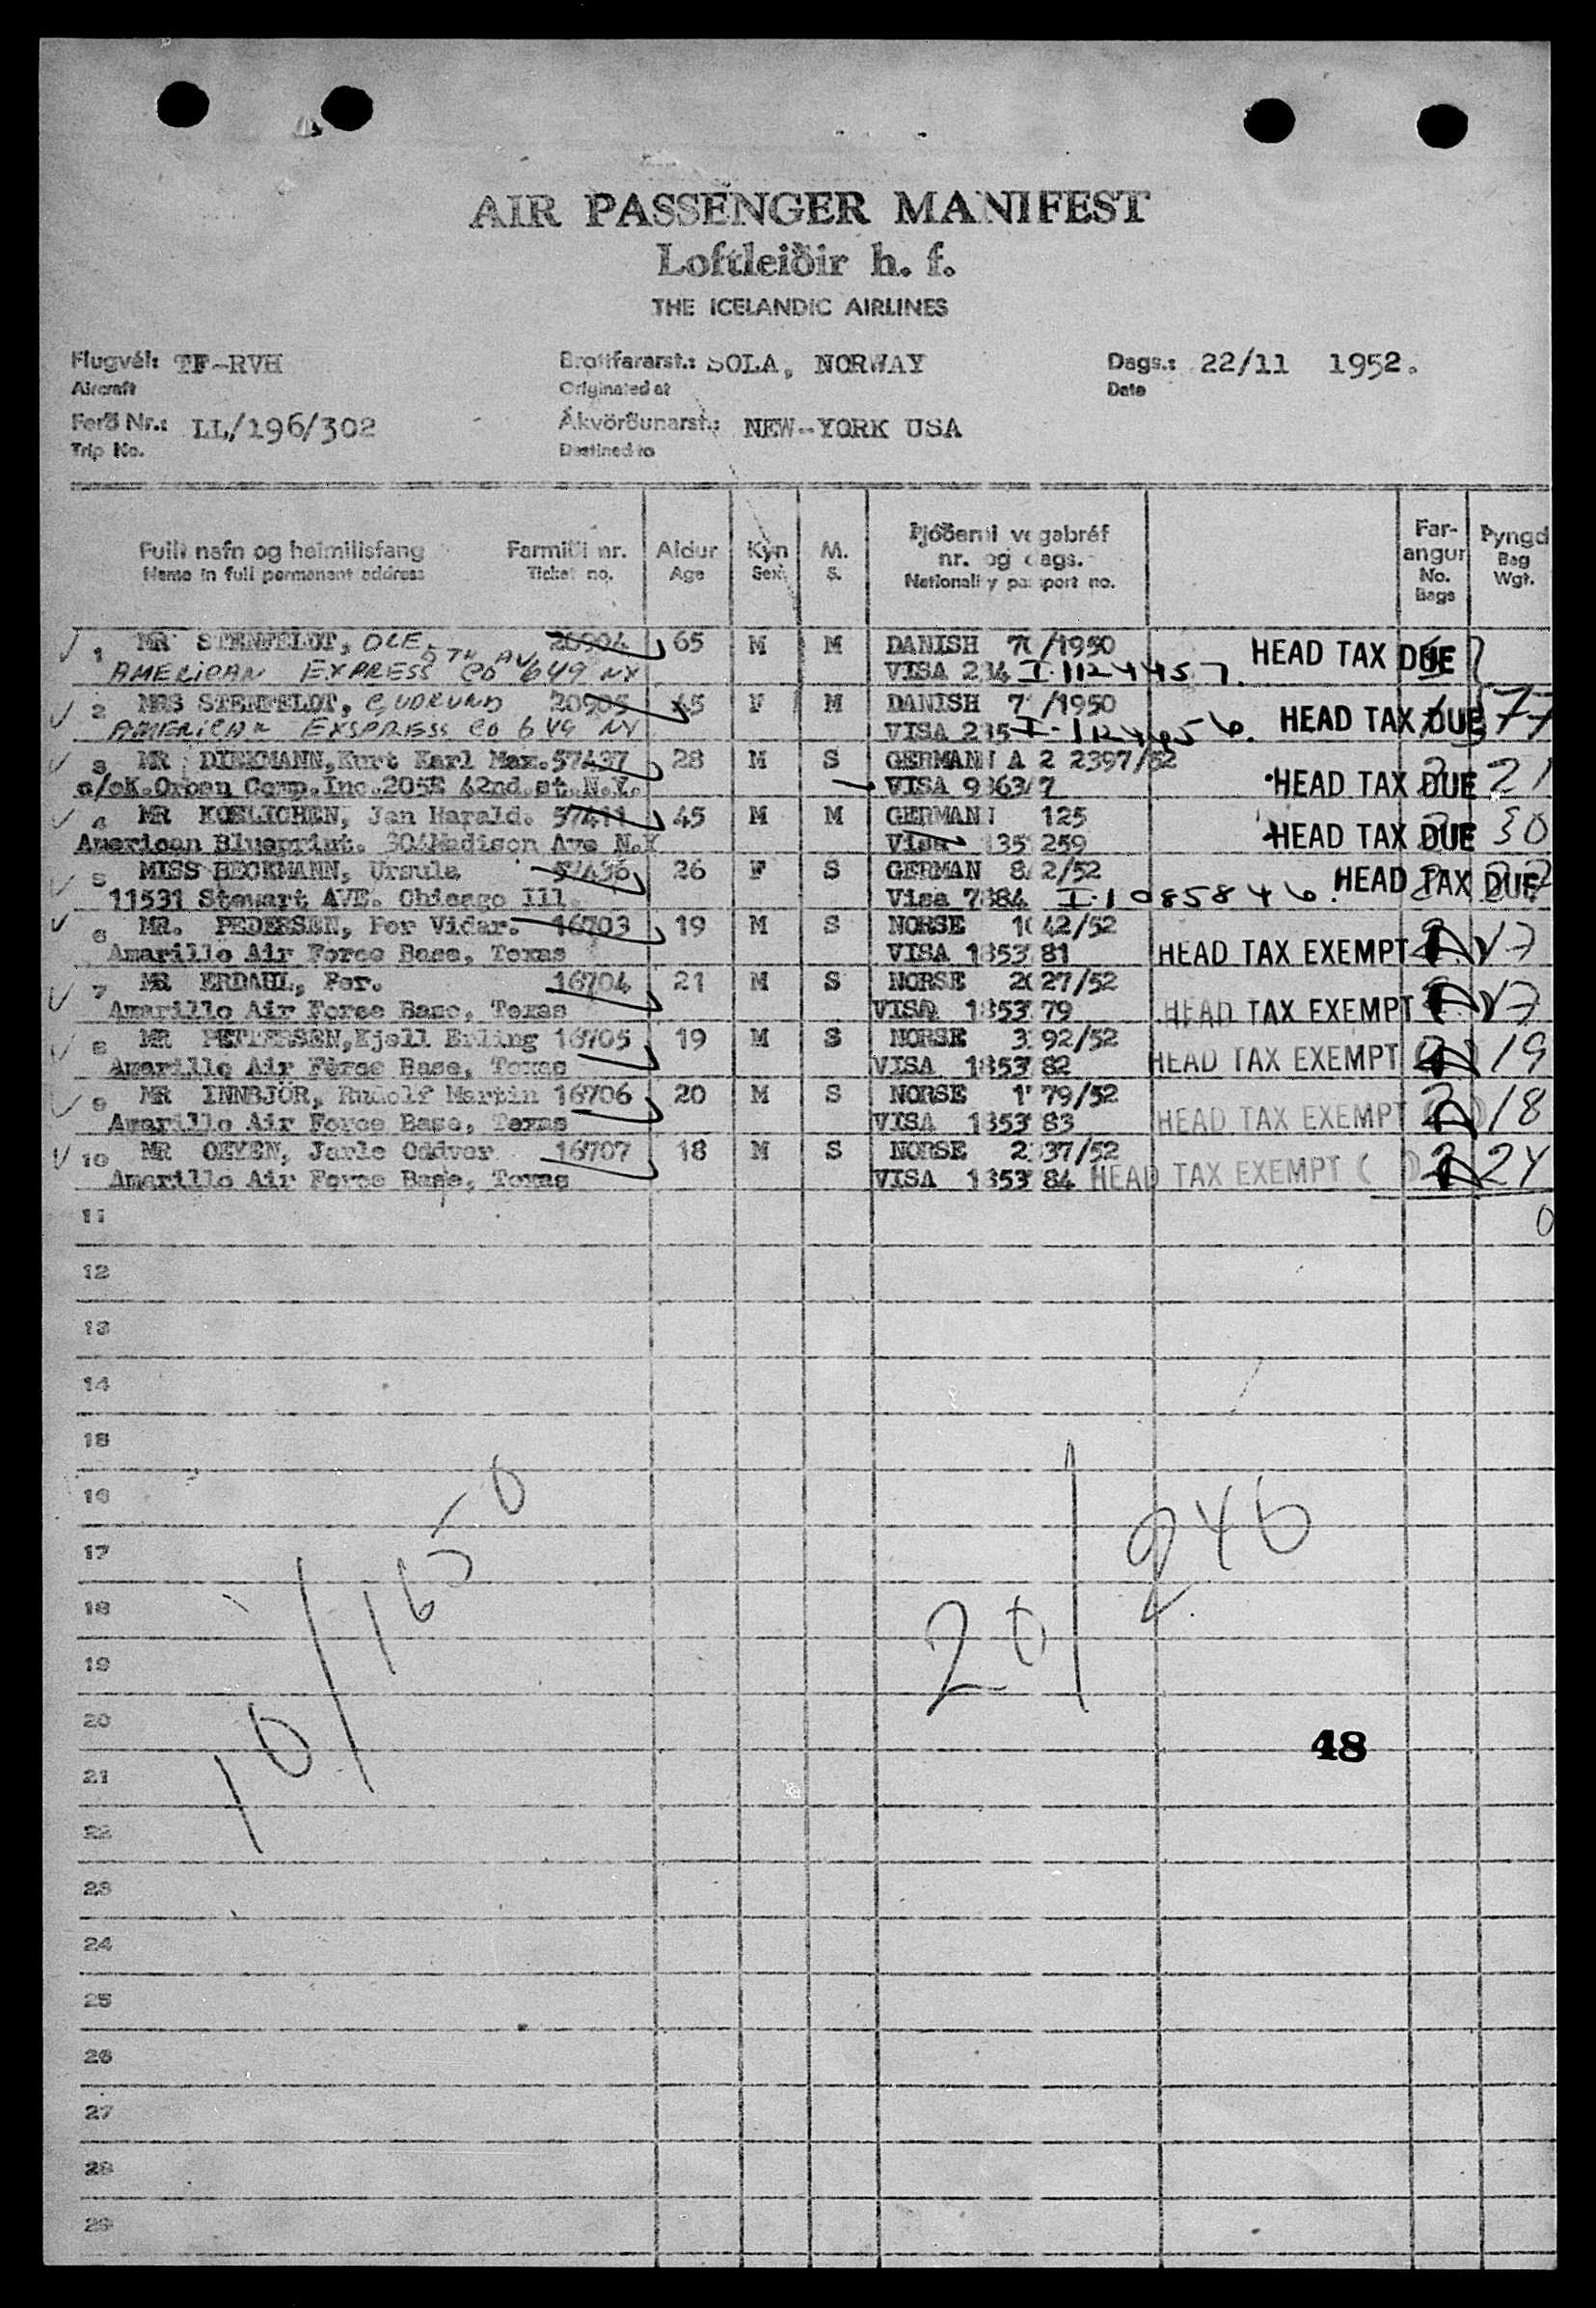 AIR PASSENGER MANIFEST
Loftleiðir h. f.
THE ICELANDIC AIRLINES
Flugvél: TF-RVH Brottfararst.: SOLA, NORWAY Dags.: 22/11 1952.
Aircraft Originated at Date
Ferð Nr.: LL/196/302 Ákvörðunarst.: NEW-YORK USA
Trip No. Destined to
Fullt nafn og heimilisfang Farmiði nr. Aldur Kyn M. Þjóðerni vegabréf Far- Þyngd
Name in full permanent address Ticket no. Age Sex S. nr. og dags. angur Bag
Nationality passport no. No. Wgt.
Bags
1 MR STENFELDT, OLE. 20904 65 M M DANISH /1950 HEAD TAX DUE
AMERICAN EXPRESS CO 649 5TH AV NY VISA I-1124457.
2 MRS STENFELDT, GUDRUND 20905 45 F M DANISH /1950 HEAD TAX DUE 77
AMERICAN EXSPRESS CO 649 NY VISA I-1124456.
3 MR DIEKMANN, Kurt Karl Max. 57437 28 M S GERMAN A 2 2397/52 HEAD TAX DUE 21
c/oK.Orban Comp.Inc.205E 42nd.st.N.Y. VISA
4 MR KOELICHEN, Jan Harald. 57411 45 M M GERMAN 125 HEAD TAX DUE 30
American Blueprint. 304Madison Ave N.Y Visa 259
5 MISS BECKMANN, Ursula 57436 26 F S GERMAN 2/52 HEAD TAX DUE
11531 Stewart AVE. Chicago Ill. Visa I-1085846.
6 MR. PEDERSEN, Per Vidar. 16703 19 M S NORSE 42/52 HEAD TAX EXEMPT 17
Amarillo Air Force Base, Texas VISA 81
7 MR ERDAHL, Per. 16704 21 M S NORSE 27/52 HEAD TAX EXEMPT 17
Amarillo Air Force Base, Texas VISA 79
8 MR PETTERSEN, Kjell Erling 16705 19 M S NORSE 92/52 HEAD TAX EXEMPT 19
Amarillo Air Force Base, Texas VISA 82
9 MR INNBJÖR, Rudolf Martin 16706 20 M S NORSE 79/52 HEAD TAX EXEMPT 18
Amarillo Air Force Base, Texas VISA 83
10 MR OEYEN, Jarle Oddver 16707 18 M S NORSE 37/52 HEAD TAX EXEMPT ( ) 2 24
Amarillo Air Force Base, Texas VISA 84
11
12
13
14
15
16
17
18
19
20
21
22
23
24
25
26
27
28
29
10/1650
20/246
48